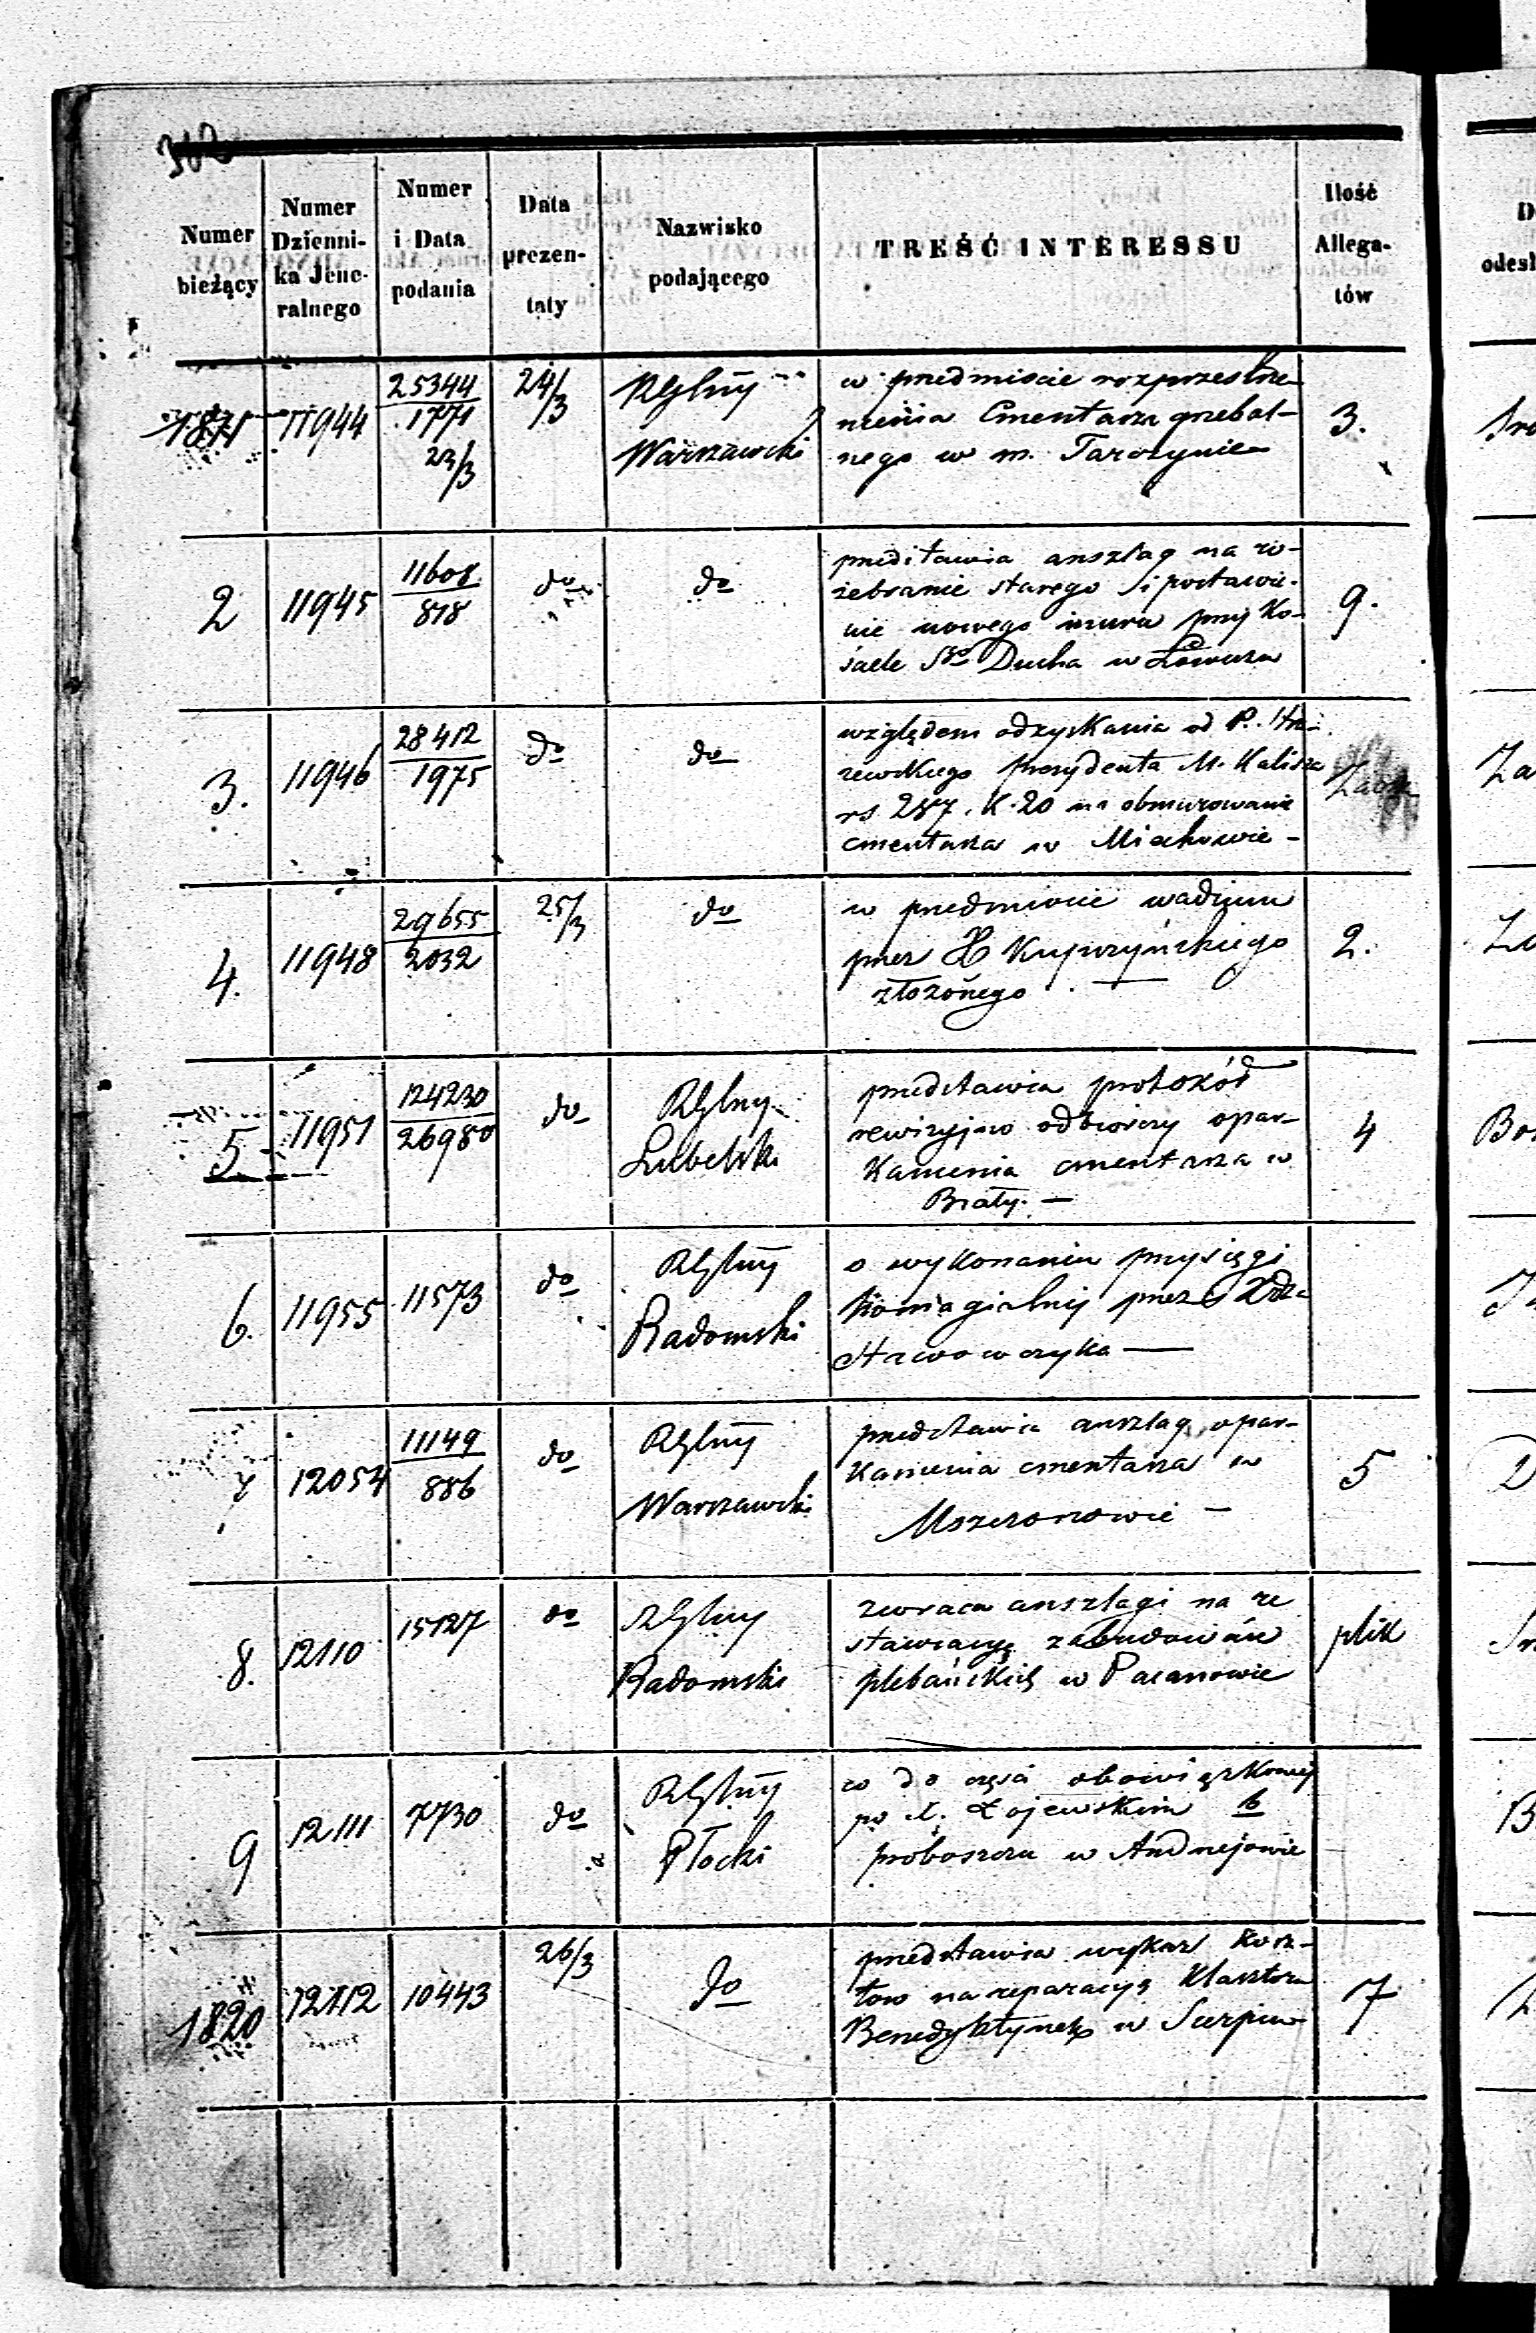 Numer bieżący
Numer Dzienni-
ka Jene-
ralnego
Numer
i Data
podania
Data
prezen-
taty
Nazwisko
podającego
TREŚĆ INTERESSU
Ilość
Allega-
tów
1811
11944
25344
1771
23/3
24/3
RGlny
Warszawski
w przedmiocie rozprzestrze-
nienia Cmentarza grzebal-
nego w m. Tarczynie
3.
2
11945
11608
818
do
do
przedstawia anszlag na ro-
zebranie starego i postawie-
nie nowego muru przy Ko-
ściele Sgo Ducha w Łowiczu
9.
3.
11946
28412
1975
do
do
względem odzyskania od P.
prezydenta M. Kalisza
rs 287. K. 20 na obmurowanie
cmentarza w Miechowie -
4.
11948
29655
2032
25/3
do
w przedmiocie wadium
przez X Kupczyńskiego
złożonego . —
2.
5
11951
124230
26980
do
RGlny
Lubelski
przedstawia protokół
rewizyjno odbiorczy opar-
kanienia cmentarza w
Biały. —
4
6.
11955
11573
do
RGlny
Radomski
o wykonaniu przysięgi
homagialnej przez Xdza
Stawowczyka —
7
12054
11149
886
do
RGlny
Warszawski
przedstawia anszlag opar-
kanienia cmentarza w
Mszczonowie —
5
8.
12110
15127
do
RGlny
Radomski
zwraca anszlagi na re
stawracyę zabudowań
plebańskich w Pacanowie
plik
9
12111
7730
do
RGlny
Płocki
co do części obowiązkowej
po X. Łojewskim b
proboszczu w Andrzejowie
1820
12112
10443
26/3
do
przedstawia wykaz kosz-
tow na reparacyę Klasztoru
Benedyktynek w Sierpcu
7